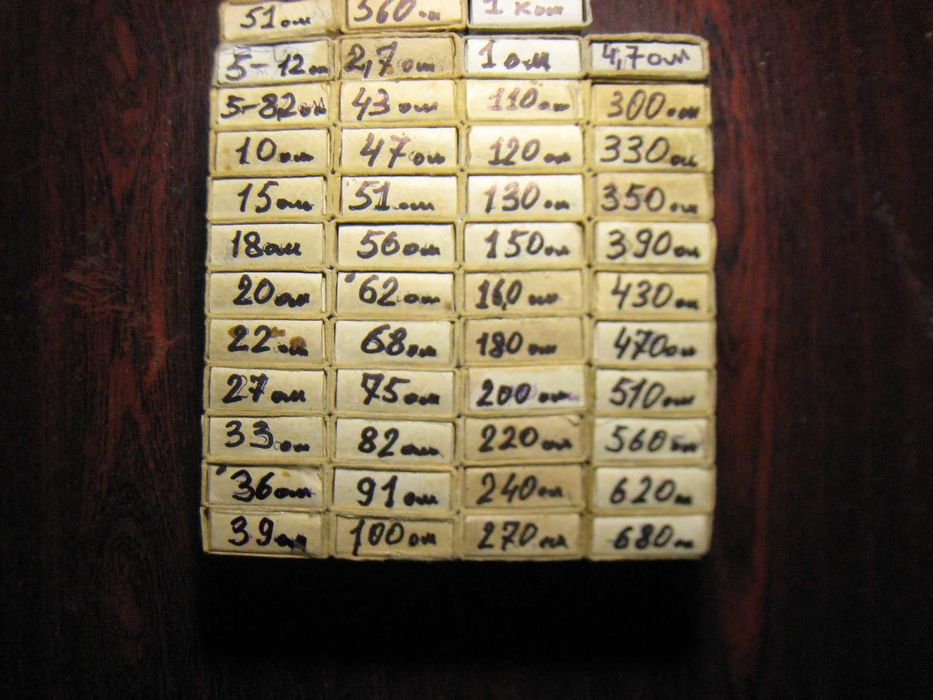 51 ом 360 ом 1 ком
5-12 ом 2,7 ом 1 ом 4,7 ом
5-82 ом 43 ом 110 ом 300 ом
10 ом 47 ом 120 ом 330 ом
15 ом 51 ом 130 ом 350 ом
18 ом 56 ом 150 ом 390 ом
20 ом 62 ом 160 ом 430 ом
22 ом 68 ом 180 ом 470 ом
27 ом 75 ом 200 ом 510 ом
33 ом 82 ом 220 ом 560 ом
36 ом 91 ом 240 ом 620 ом
39 ом 100 ом 270 ом 680 ом